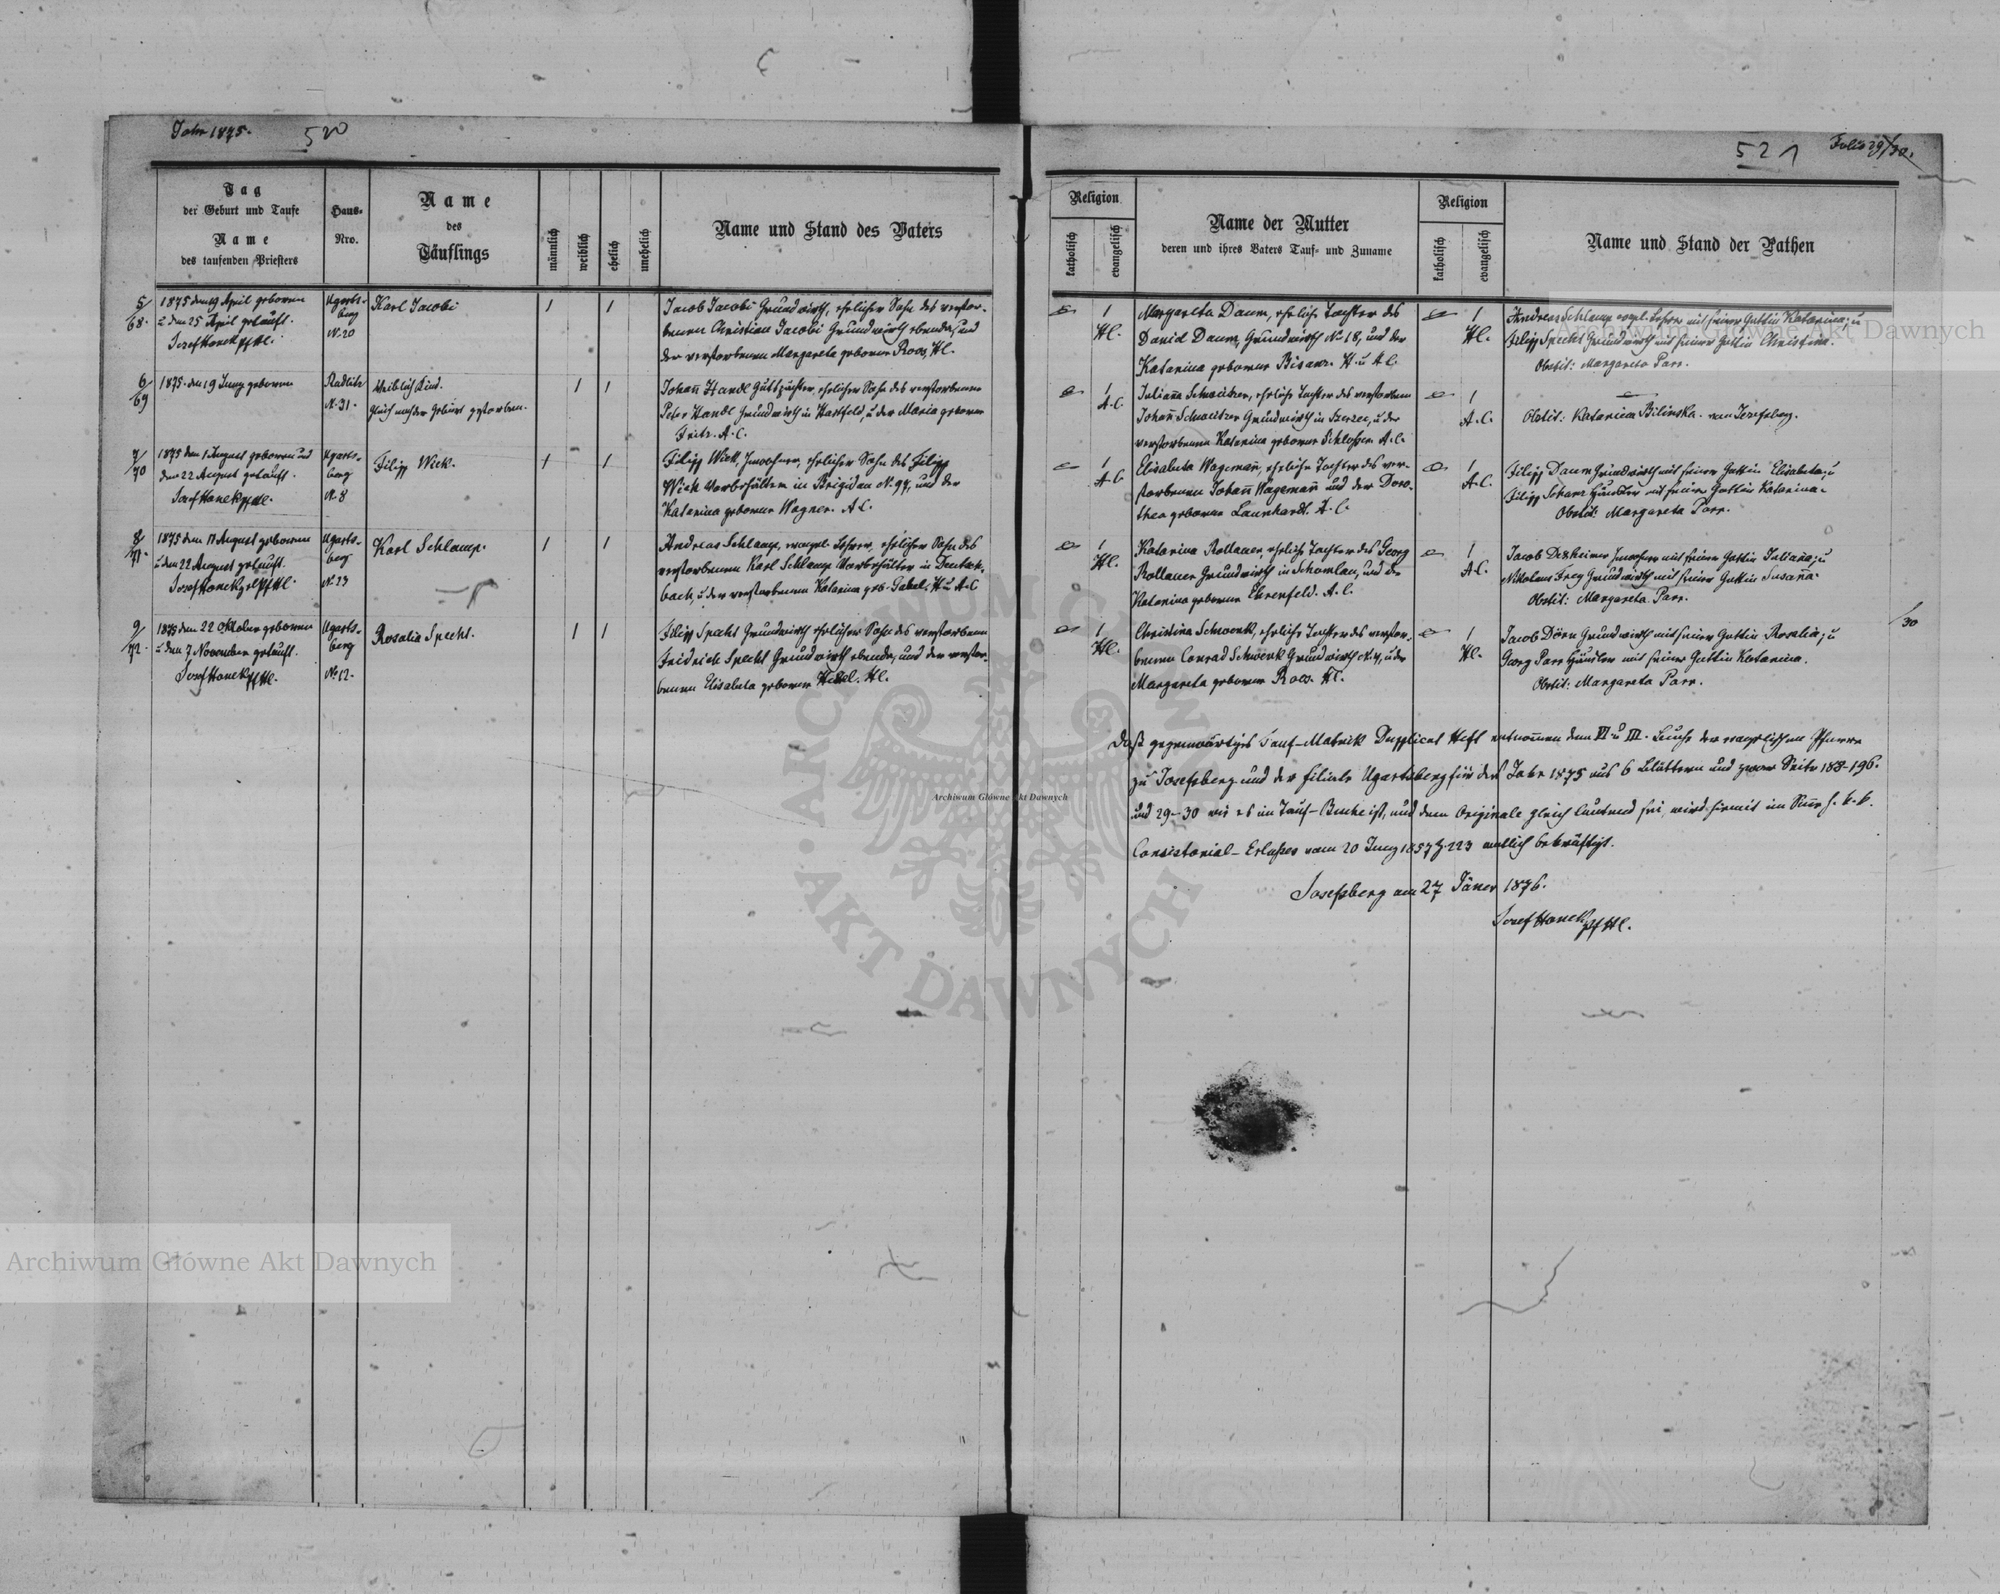 Jahr 1875.
520
521
Folio 29/30.
Tag
der Geburt und Taufe
Name
des taufenden Priesters
Haus-
Nro.
Name
des
Täuflings
männlich
weiblich
ehelich
unehelich
Name und Stand des Vaters
Religion
katholisch
evangelisch
Name der Mutter
deren und ihres Vaters Tauf- und Zuname
Religion
katholisch
evangelisch
Name und Stand der Pathen
5/68.
1875 den 9 April geboren
u den 25 April getauft.
Josef Honek Pf Hl.
Ugarts-
berg
N. 20
Karl Jacobi
1
1
Jacob Jacobi Grundwirth, ehelicher Sohn des verstor-
benen Christian Jacobi Grundwirth ebenda, und
der verstorbenen Margareta geborne Roos, Hl.
1
Hl.
Margareta Daum, eheliche Tochter des
David Daum, Grundwirth N. 18, und der
Katarina geborene Bisanz. H. u A.C.
1
Hl.
Andreas Schlamp evgl. Lehrer mit seiner Gattin Katarina; u
Filipp Specht Grundwirth mit seiner Gattin Christina.
Obstit: Margareta Parr.
6/69
1875. den 19 Juny geboren
Radlitz
N. 31.
Weiblich Kind.
gleich nach der Geburt gestorben.
1
1
Johann Handl Guttpächter, ehelicher Sohn des verstorbenen
Peter Handl Grundwirth in Hartfeld, u der Maria geborene
Fritz. A.C.
1
A.C.
Juliana Schweitzer, eheliche Tochter des verstorbenen
Johann Schweitzer Grundwirth in Szczerzec, u der
verstorbenen Katarina geborene Schlosser A.C.
1
A.C.
Obstit: Katarina Bilinska. von Josefsberg.
7/70
1875 den 1 August geboren und
den 22 August getauft.
Josef Honek Pf Hl.
Ugarts-
berg
N. 8
Filipp Wick.
1
1
Filipp Wick, Inwohner, ehelicher Sohn des Filipp
Wick Vorbehälter in Brigidau N. 97, und der
Katarina geborene Wagner. A.C.
1
A.C.
Elisabeta Wagemann, eheliche Tochter des ver-
storbenen Johann Wagemann und der Doro-
thea geborene Launhardt. A.C.
1
A.C.
Filipp Daum Grundwirth mit seiner Gattin Elisabeta; u
Filipp Schanz Häusler mit seiner Gattin Katarina.
Obstit: Margareta Parr.
8/71.
1875 den 17 August geboren
u den 22 August getauft.
Josef Honek Pf Hl.
Ugarts-
berg
N. 23
Karl Schlamp.
1
1
Andreas Schlamp, evangel. Lehrer, ehelicher Sohn des
verstorbenen Karl Schlamp Vorbehälter in Deutsch-
bach, u der verstorbenen Katarina geb. Gabel. H u A.C
1
Hl.
Katarina Rollauer, eheliche Tochter des Georg
Rollauer Grundwirth in Schomlau, und der
Katarina geborene Ehrenfeld. A.C.
1
A.C.
Jacob Desheimer Inwohner mit seiner Gattin Juliana; u
Nikolaus Frey Grundwirth mit seiner Gattin Susana.
Obstit: Margareta Parr.
9/72.
1875 den 22 Oktober geboren
u den 7 November getauft.
Josef Honek Pf Hl.
Ugarts-
berg
N. 12.
Rosalia Specht.
1
1
Filipp Specht Grundwirth ehelicher Sohn des verstorbenen
Fridrich Specht Grundwirth ebenda, und der verstor-
benen Elisabeta geborene Hl.
1
Hl.
Christina Schwenk, eheliche Tochter des verstor-
benen Conrad Schwenk Grundwirth N. 4, u der
Margareta geborene Roos. Hl.
1
Hl.
Jacob Dörn Grundwirth mit seiner Gattin Rosalia; u
Georg Parr Häusler mit seiner Gattin Katarina.
Obstit: Margareta Parr.
30
Daß gegenwärtiges Tauf-Matrik Dupplicat Heft entnommen dem VI u III. Buche der evanglischen Pfarre
zu Josefsberg und der Filiale Ugartsberg für das Jahr 1875 aus 6 Blättern und zwar Seite 188-196.
und 29-30 wie es im Tauf-Buche ist, und dem Originale gleich lautend sei, wird hiemit im Sinne h. k.k.
Consistorial-Erlaßes vom 20 Juny 1857 Z. 223 amtlich bekräftigt.
Josefsberg am 27 Jäner 1876.
Josef Honek Pf Hl.
Archiwum Główne Akt Dawnych
Archiwum Główne Akt Dawnych
Archiwum Główne Akt Dawnych